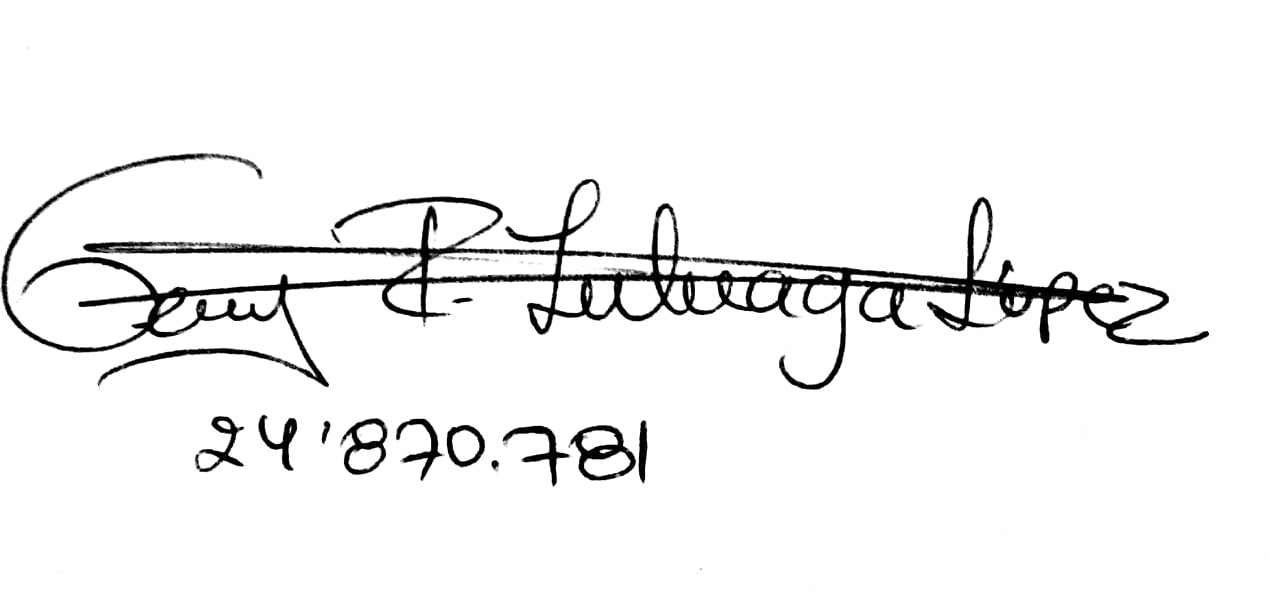 P. Zuluaga López
24'870.781